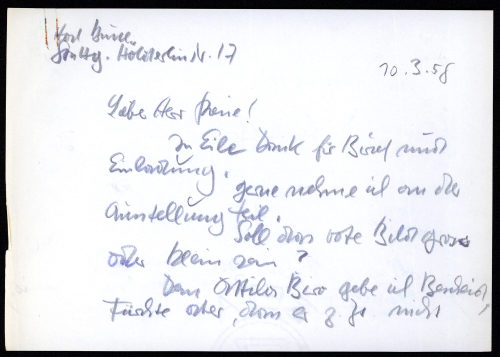 Stuttg. Hölderlinstr. 17
10.3.58
Lieber Herr
In Eile Dank für Brief und
Einladung.
gerne nehme ich an der
Ausstellung teil.
Soll das rote Bild gross
oder klein sein?
Dem Attila Biro gebe ich Bescheid,
fürchte aber, dass er z. Zt. nicht